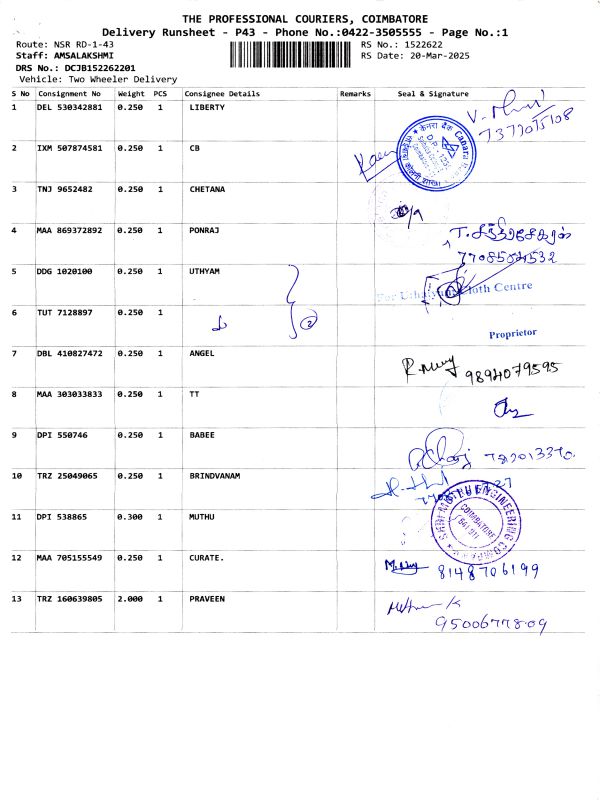 THE PROFESSIONAL COURIERS, COIMBATORE
Delivery Runsheet - P43 - Phone No.:0422-3505555 - Page No.:1
Route: NSR RD-1-43 RS No.: 1522622
Staff: AMSALAKSHMI RS Date: 20-Mar-2025
DRS No.: DCJB152262201
Vehicle: Two Wheeler Delivery
S No Consignment No Weight PCS Consignee Details Remarks Seal & Signature
1 DEL 530342881 0.250 1 LIBERTY
2 IXM 507874581 0.250 1 CB
3 TNJ 9652482 0.250 1 CHETANA
4 MAA 869372892 0.250 1 PONRAJ
5 DDG 1020100 0.250 1 UTHYAM
Cloth Centre
6 TUT 7128897 0.250 1
2
Proprietor
7 DBL 410827472 0.250 1 ANGEL
9894079595
8 MAA 303033833 0.250 1 TT
9 DPI 550746 0.250 1 BABEE
10 TRZ 25049065 0.250 1 BRINDVANAM
11 DPI 538865 0.300 1 MUTHU
ENGINEERING
COIMBATORE
12 MAA 705155549 0.250 1 CURATE.
8148706199
13 TRZ 160639805 2.000 1 PRAVEEN
9500677809